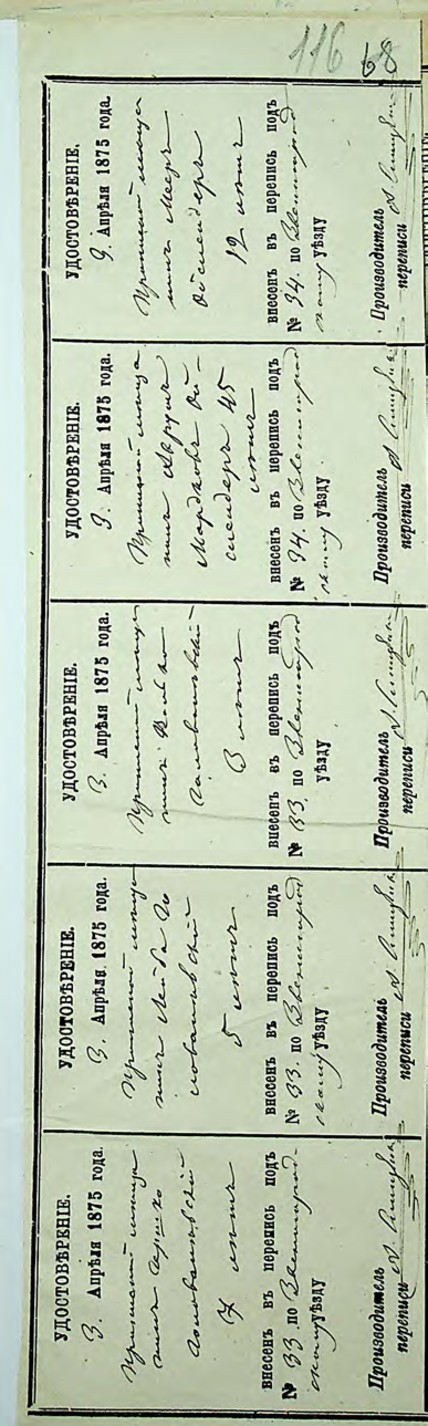 116 68
УДОСТОВѢРЕНІЕ.
3. Апрѣля 1875 года.
мѣща
нинъ
7 лѣтъ
внесенъ въ перепись подъ
№ 33. по Звенигород-
скому уѣзду
Производитель
переписи
УДОСТОВѢРЕНІЕ.
3. Апрѣля 1875 года.
мѣща
нинъ Лейба Го
лованевскій
5 лѣтъ
внесенъ въ перепись подъ
№ 33. по Звенигород
скому уѣзду
Производитель
переписи
УДОСТОВѢРЕНІЕ.
3. Апрѣля 1875 года.
мѣща
нинъ
3 лѣтъ
внесенъ въ перепись подъ
№ 33. по Звенигород
уѣзду
Производитель
переписи
УДОСТОВѢРЕНІЕ.
3. Апрѣля 1875 года.
мѣща
нинъ
Мордковъ Ой-
слендеръ 45
лѣтъ
внесенъ въ перепись подъ
№ 34. по Звенигород
скому уѣзду
Производитель
переписи
УДОСТОВѢРЕНІЕ.
3. Апрѣля 1875 года.
мѣща
нинъ Мееръ
Ойслендеръ
12 лѣтъ
внесенъ въ перепись подъ
№ 34. по Звенигород
скому уѣзду
Производитель
переписи